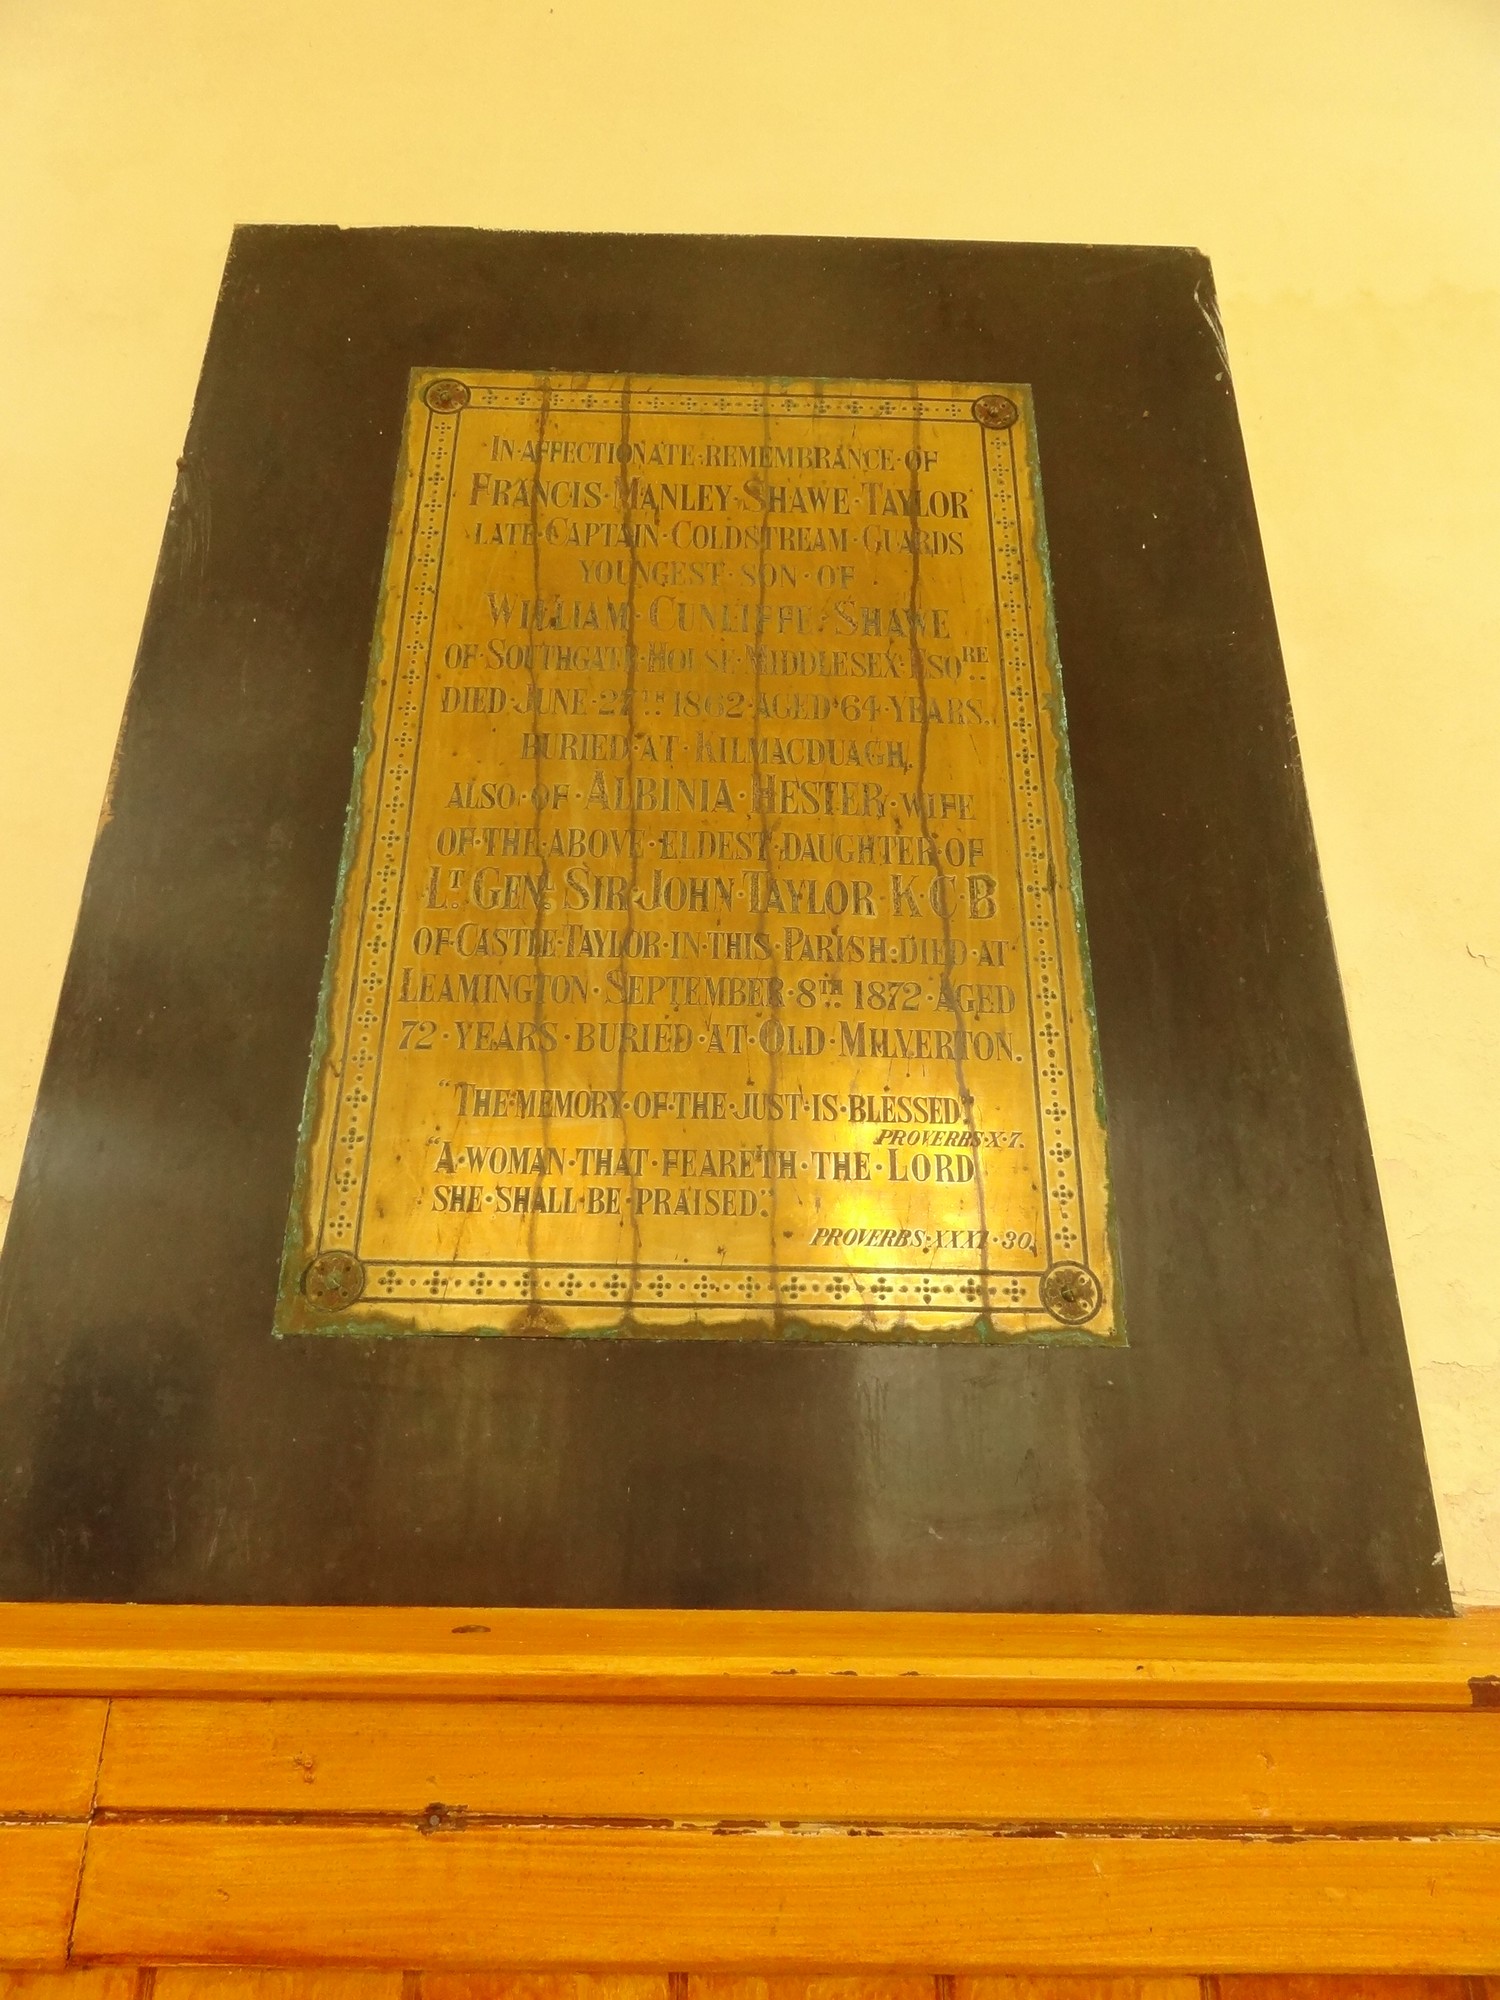 IN·AFFECTIONATE·REMEMBRANCE·OF
FRANCIS·MANLEY·SHAWE·TAYLOR
LATE·CAPTAIN·COLDSTREAM·GUARDS
YOUNGEST·SON·OF
WILLIAM·CUNLIFFE·SHAWE
OF·SOUTHGATE·HOUSE·MIDDLESEX·ESQRE
DIED·JUNE·27TH 1862·AGED·64·YEARS.
BURIED·AT·KILMACDUAGH.
ALSO·OF·ALBINIA·HESTER·WIFE
OF·THE·ABOVE·ELDEST·DAUGHTER·OF
LT. GENL. SIR·JOHN·TAYLOR·K·C·B
OF·CASTLE·TAYLOR·IN·THIS·PARISH·DIED·AT
LEAMINGTON·SEPTEMBER·8TH 1872·AGED
72·YEARS·BURIED·AT·OLD·MILVERTON.
"THE·MEMORY·OF·THE·JUST·IS·BLESSED."
PROVERBS·X·7.
"A·WOMAN·THAT·FEARETH·THE·LORD
SHE·SHALL·BE·PRAISED."
PROVERBS·XXXI·30.